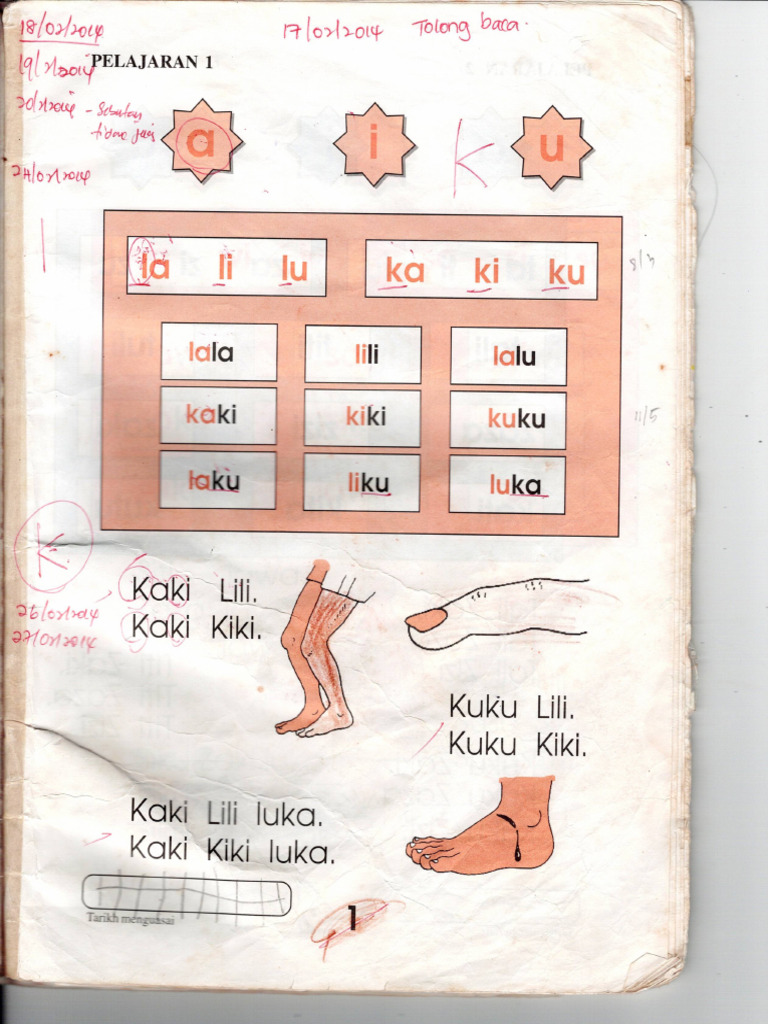 18/02/2014 17/02/2014 Tolong baca.
19/2/2014
PELAJARAN 1
20/2/2014 - Sebutan
tidak jelas
24/02/2014
a i K u
la li lu ka ki ku
lala lili lalu
kaki kiki kuku
11/5
laku liku luka
K
Kaki Lili.
26/02/2014
Kaki Kiki.
27/02/2014
Kuku Lili.
Kuku Kiki.
Kaki Lili luka.
Kaki Kiki luka.
Tarikh menguasai
1